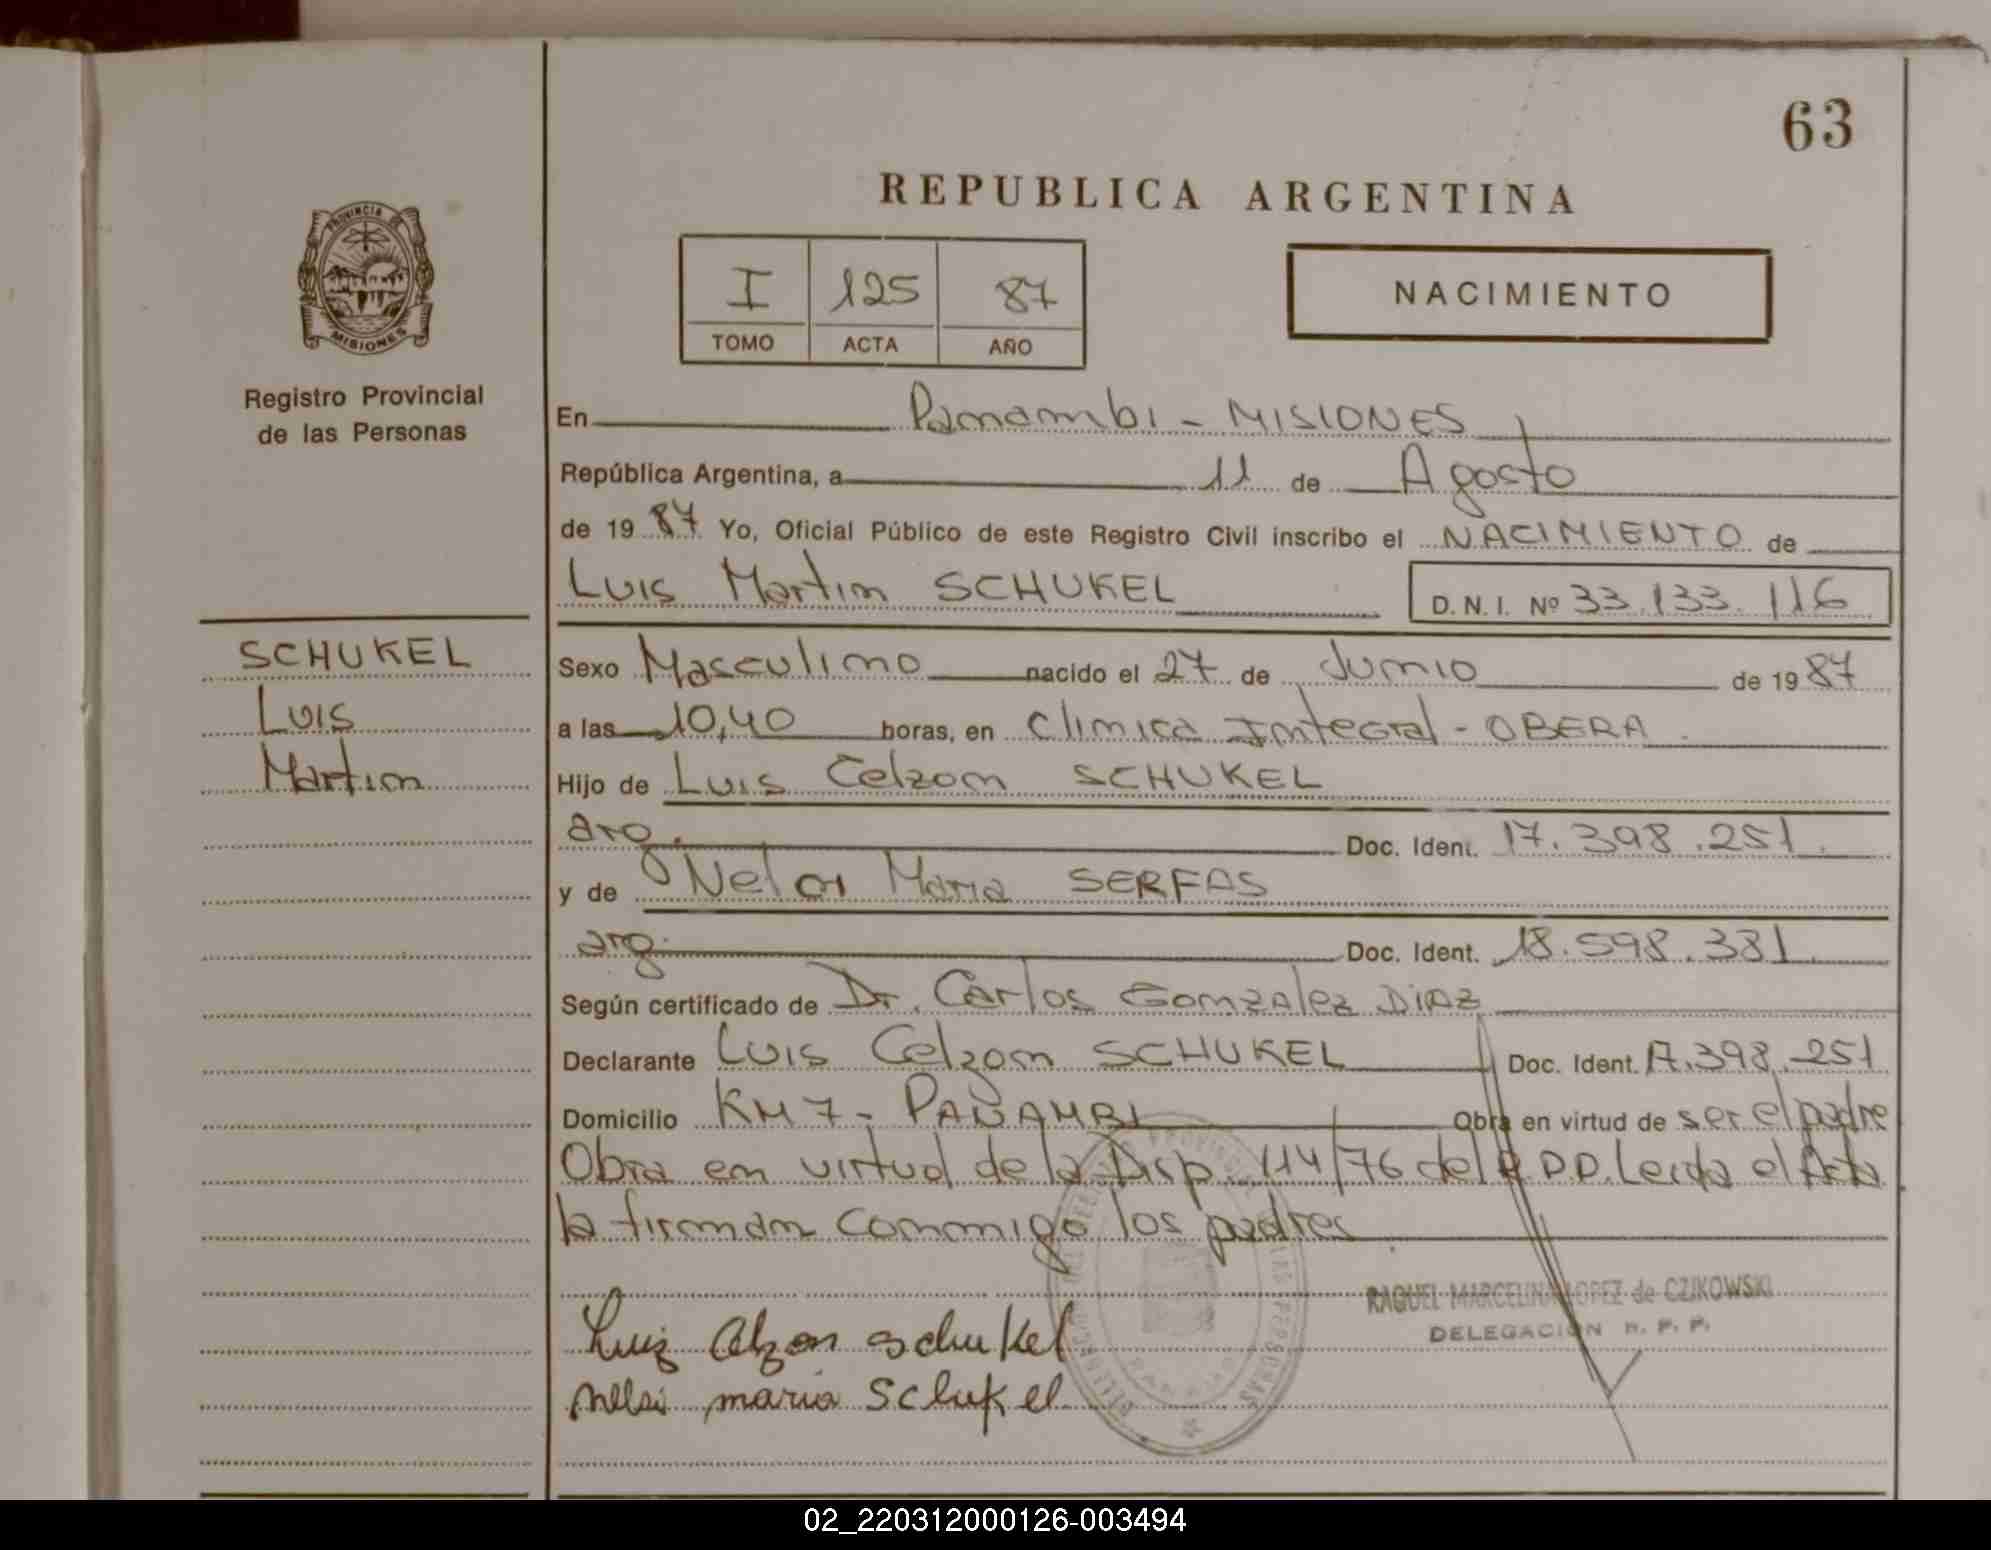 63
REPUBLICA ARGENTINA
PROVINCIA
MISIONES
Registro Provincial
de las Personas
I 125 87
TOMO ACTA AÑO
NACIMIENTO
En Panambi - MISIONES
República Argentina, a 11 de Agosto
de 19 87 Yo, Oficial Público de este Registro Civil inscribo el NACIMIENTO de
Luis Martin SCHUKEL D.N.I. Nº 33.133.116
SCHUKEL
Luis
Martin
Sexo Masculino nacido el 27 de Junio de 19 87
a las 10,40 horas, en Clinica Integral - OBERA
Hijo de Luis Celzon SCHUKEL
arg. Doc. Ident. 17.398.251.
y de Maria SERFAS
arg. Doc. Ident. 18.598.381
Según certificado de Dr. Carlos Gonzalez DIAZ
Declarante Luis Celzon SCHUKEL Doc. Ident. 17.398.251
Domicilio KM 7 - PANAMBI Obra en virtud de ser el padre
Obra en virtud de la Disp. 114/76 del R.P.P. Leida el Acta
la firman conmigo los padres
RAQUEL MARCELINA LOPEZ de CZIKOWSKI
DELEGACION R. P. P.
Luiz Celzon Schukel
maria Schukel
02_220312000126-003494